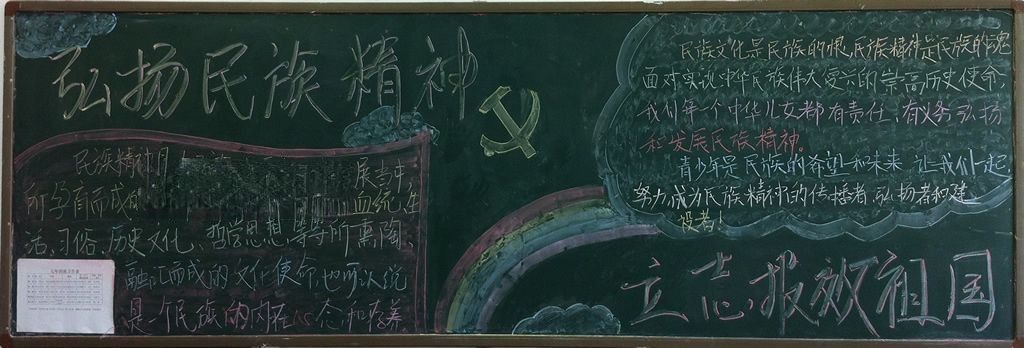 弘扬民族精神
民族精神
展当中
所孕育而成
血统、生
活、习俗、历史文化、哲学思想等等所熏陶、
融汇而成的文化使命,也可以说
是一个民族的内在心态和存养
民族文化是民族的根,民族精神是民族的魂
面对实现中华民族伟大复兴的崇高历史使命,
我们每一个中华儿女都有责任、有义务弘扬
和发展民族精神。
青少年是民族的希望和未来 让我们一起
努力,成为民族精神的传播者、弘扬者和建
设者!
立志报效祖国